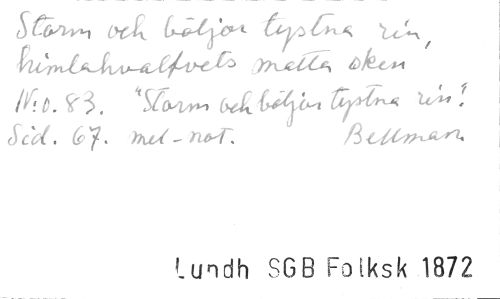 Storm och böljor tystna ren,
himlahvalfvets matta sken
N:o. 83. "Storm och böljor tystna ren".
Sid. 67. mel-not. Bellman
Lundh SGB Folksk 1872